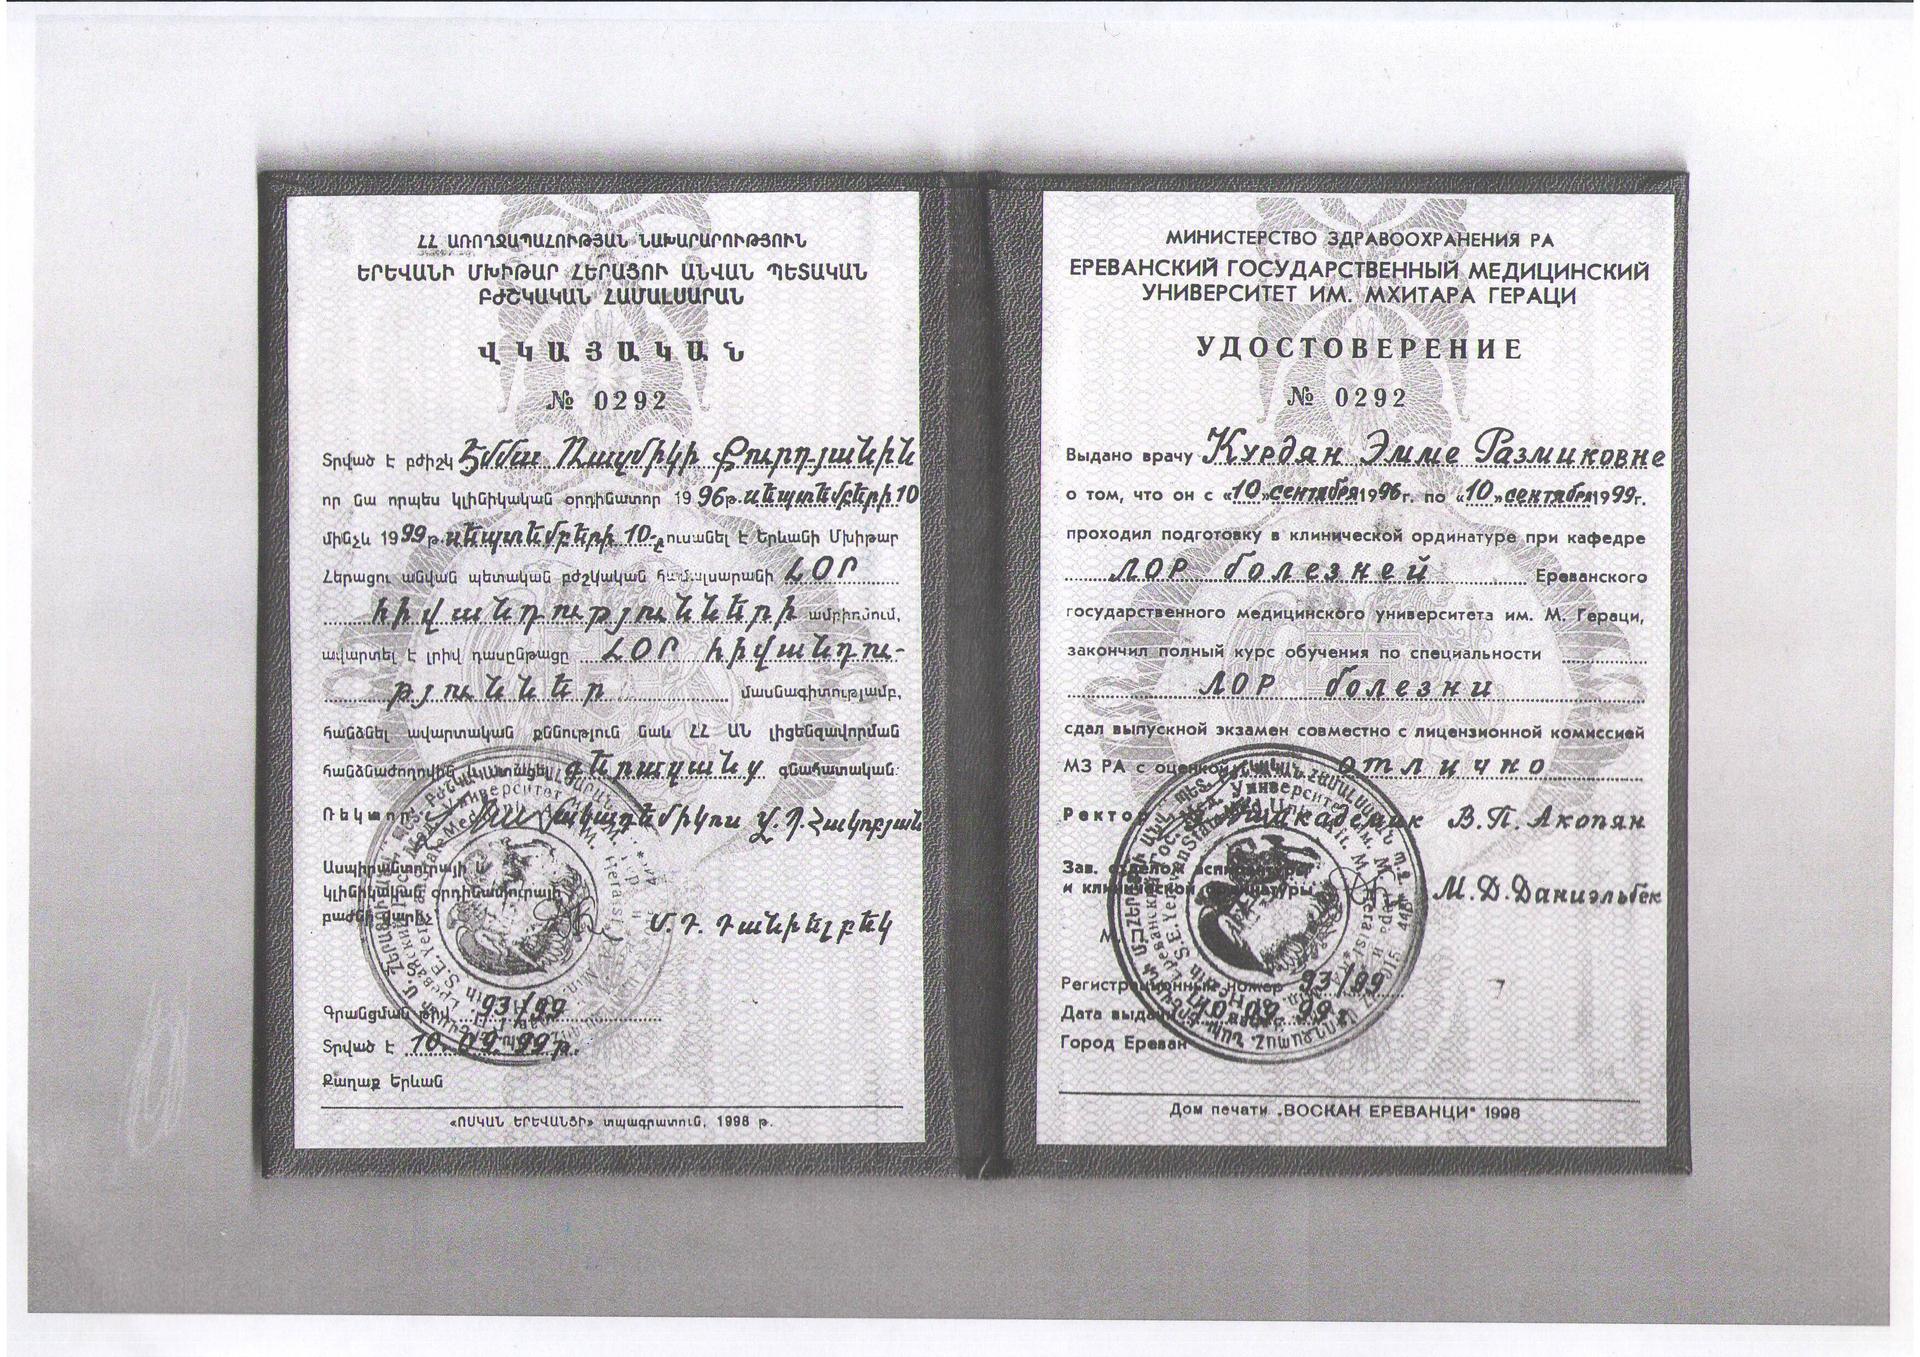 ՀՀ ԱՌՈՂՋԱՊԱՀՈՒԹՅԱՆ ՆԱԽԱՐԱՐՈՒԹՅՈՒՆ
ԵՐԵՎԱՆԻ ՄԽԻԹԱՐ ՀԵՐԱՑՈՒ ԱՆՎԱՆ ՊԵՏԱԿԱՆ
ԲԺՇԿԱԿԱՆ ՀԱՄԱԼՍԱՐԱՆ
ՎԿԱՅԱԿԱՆ
№ 0292
Տրված է բժիշկ Էմմա Ռազմիկի Քուրդյանին
որ նա որպես կլինիկական օրդինատոր 1996թ. սեպտեմբերի 10
մինչև 1999թ. սեպտեմբերի 10-ը ուսանել է Երևանի Մխիթար
Հերացու անվան պետական բժշկական համալսարանի ՀՕՐ
հիվանդությունների ամբիոնում,
ավարտել է լրիվ դասընթացը ՀՕՐ հիվանդու-
թյուններ մասնագիտությամբ,
հանձնել ավարտական քննություն նաև ՀՀ ԱՆ լիցենզավորման
հանձնաժողովին և ստացել գերազանց գնահատական:
Ռեկտոր՝ ակադեմիկոս Վ.Պ.Հակոբյան
Ասպիրանտուրայի և
կլինիկական օրդինատուրայի
բաժնի վարիչ՝ Մ.Դ. Դանիելբեկ
Գրանցման թիվ 93/99
Տրված է 10.09.99թ.
Քաղաք Երևան
«ՈՍԿԱՆ ԵՐԵՎԱՆՑԻ» տպագրատուն, 1998 թ.
МИНИСТЕРСТВО ЗДРАВООХРАНЕНИЯ РА
ЕРЕВАНСКИЙ ГОСУДАРСТВЕННЫЙ МЕДИЦИНСКИЙ
УНИВЕРСИТЕТ ИМ. МХИТАРА ГЕРАЦИ
УДОСТОВЕРЕНИЕ
№ 0292
Выдано врачу Курдян Эмме Размиковне
о том, что он с «10» сентября 1996г. по «10» сентября 1999г.
проходил подготовку в клинической ординатуре при кафедре
ЛОР болезней Ереванского
государственного медицинского университета им. М. Гераци,
закончил полный курс обучения по специальности
ЛОР болезни
сдал выпускной экзамен совместно с лицензионной комиссией
МЗ РА с оценкой отлично
Ректор академик В.П. Акопян
Зав. отделом аспирантуры
и клинической ординатуры М.Д.Даниэльбек
М.
Регистрационный номер 93/99
Дата выдачи 10.09.99г.
Город Ереван
Дом печати „ВОСКАН ЕРЕВАНЦИ“ 1998